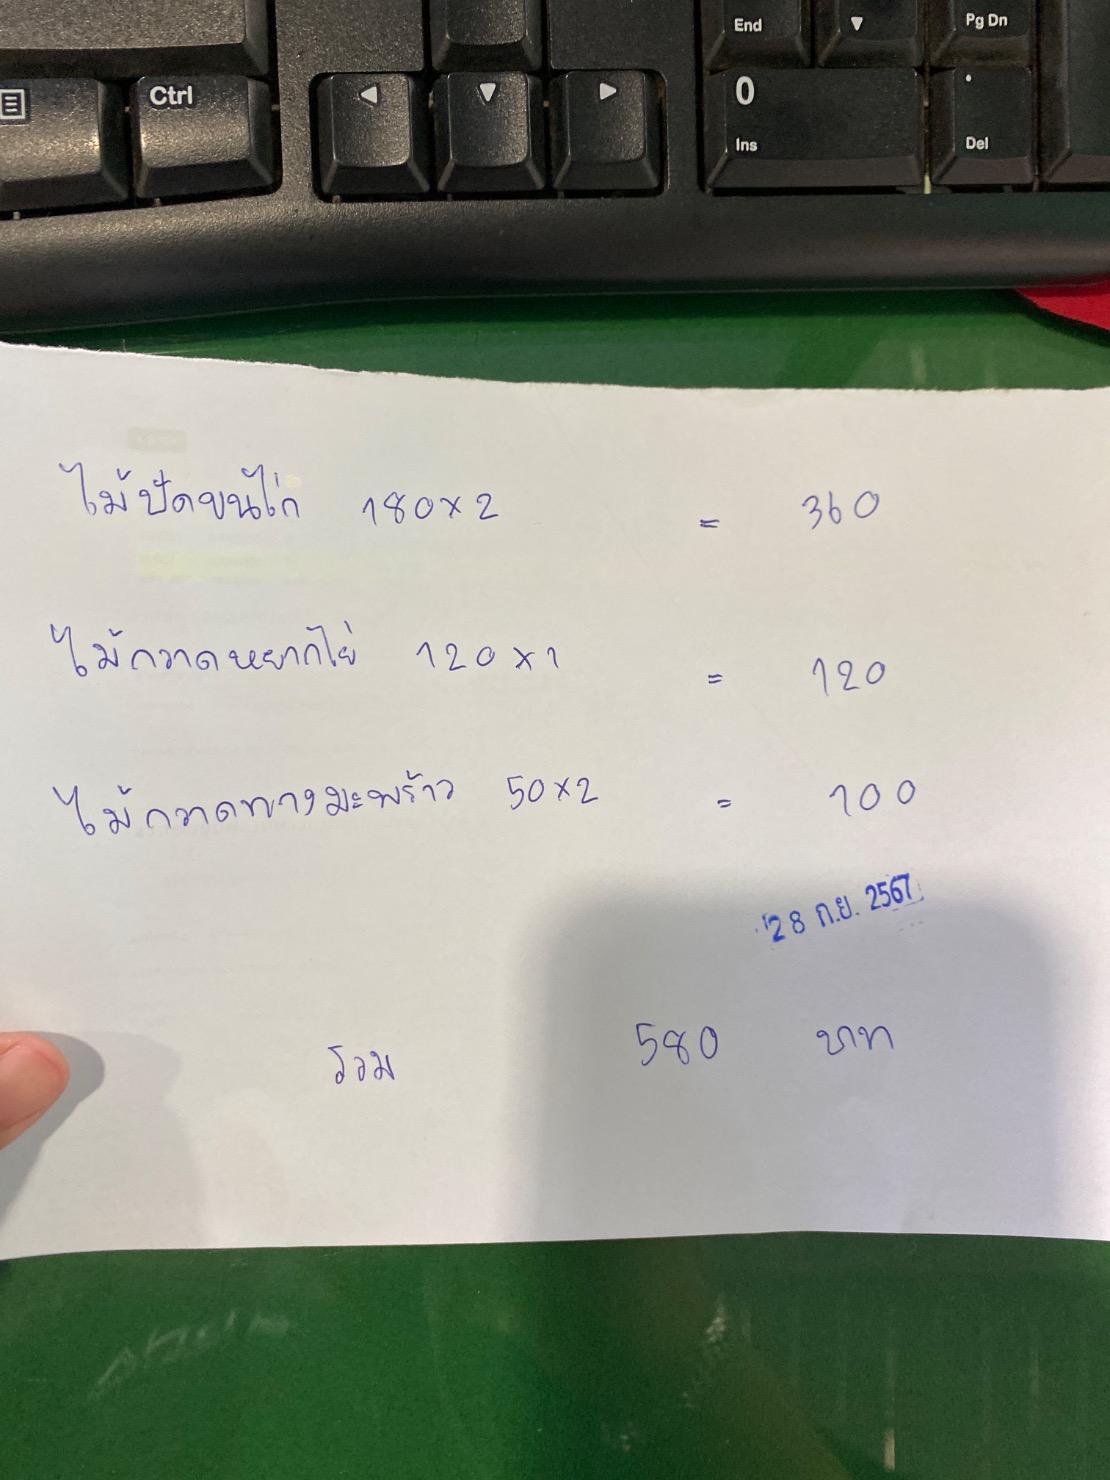 End
▼
Pg Dn
Ctrl
◄ ▼ ►
0
Ins
.
Del
ไม้ปัดขนไก่ 180 x 2 = 360
ไม้กวาดหยากไย่ 120 x 1 = 120
ไม้กวาดทางมะพร้าว 50 x 2 = 100
28 ก.ย. 2567
รวม 580 บาท